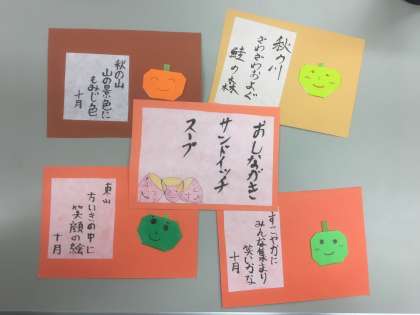 秋の山
山の景色に
もみじ色
十月
秋の川
ざわざわおよぐ
鮭の森
おしながき
サンドイッチ
スープ
東山
方いきの中に
笑顔の絵
十月
すこやかに
みんな集まり
笑いかな
十月